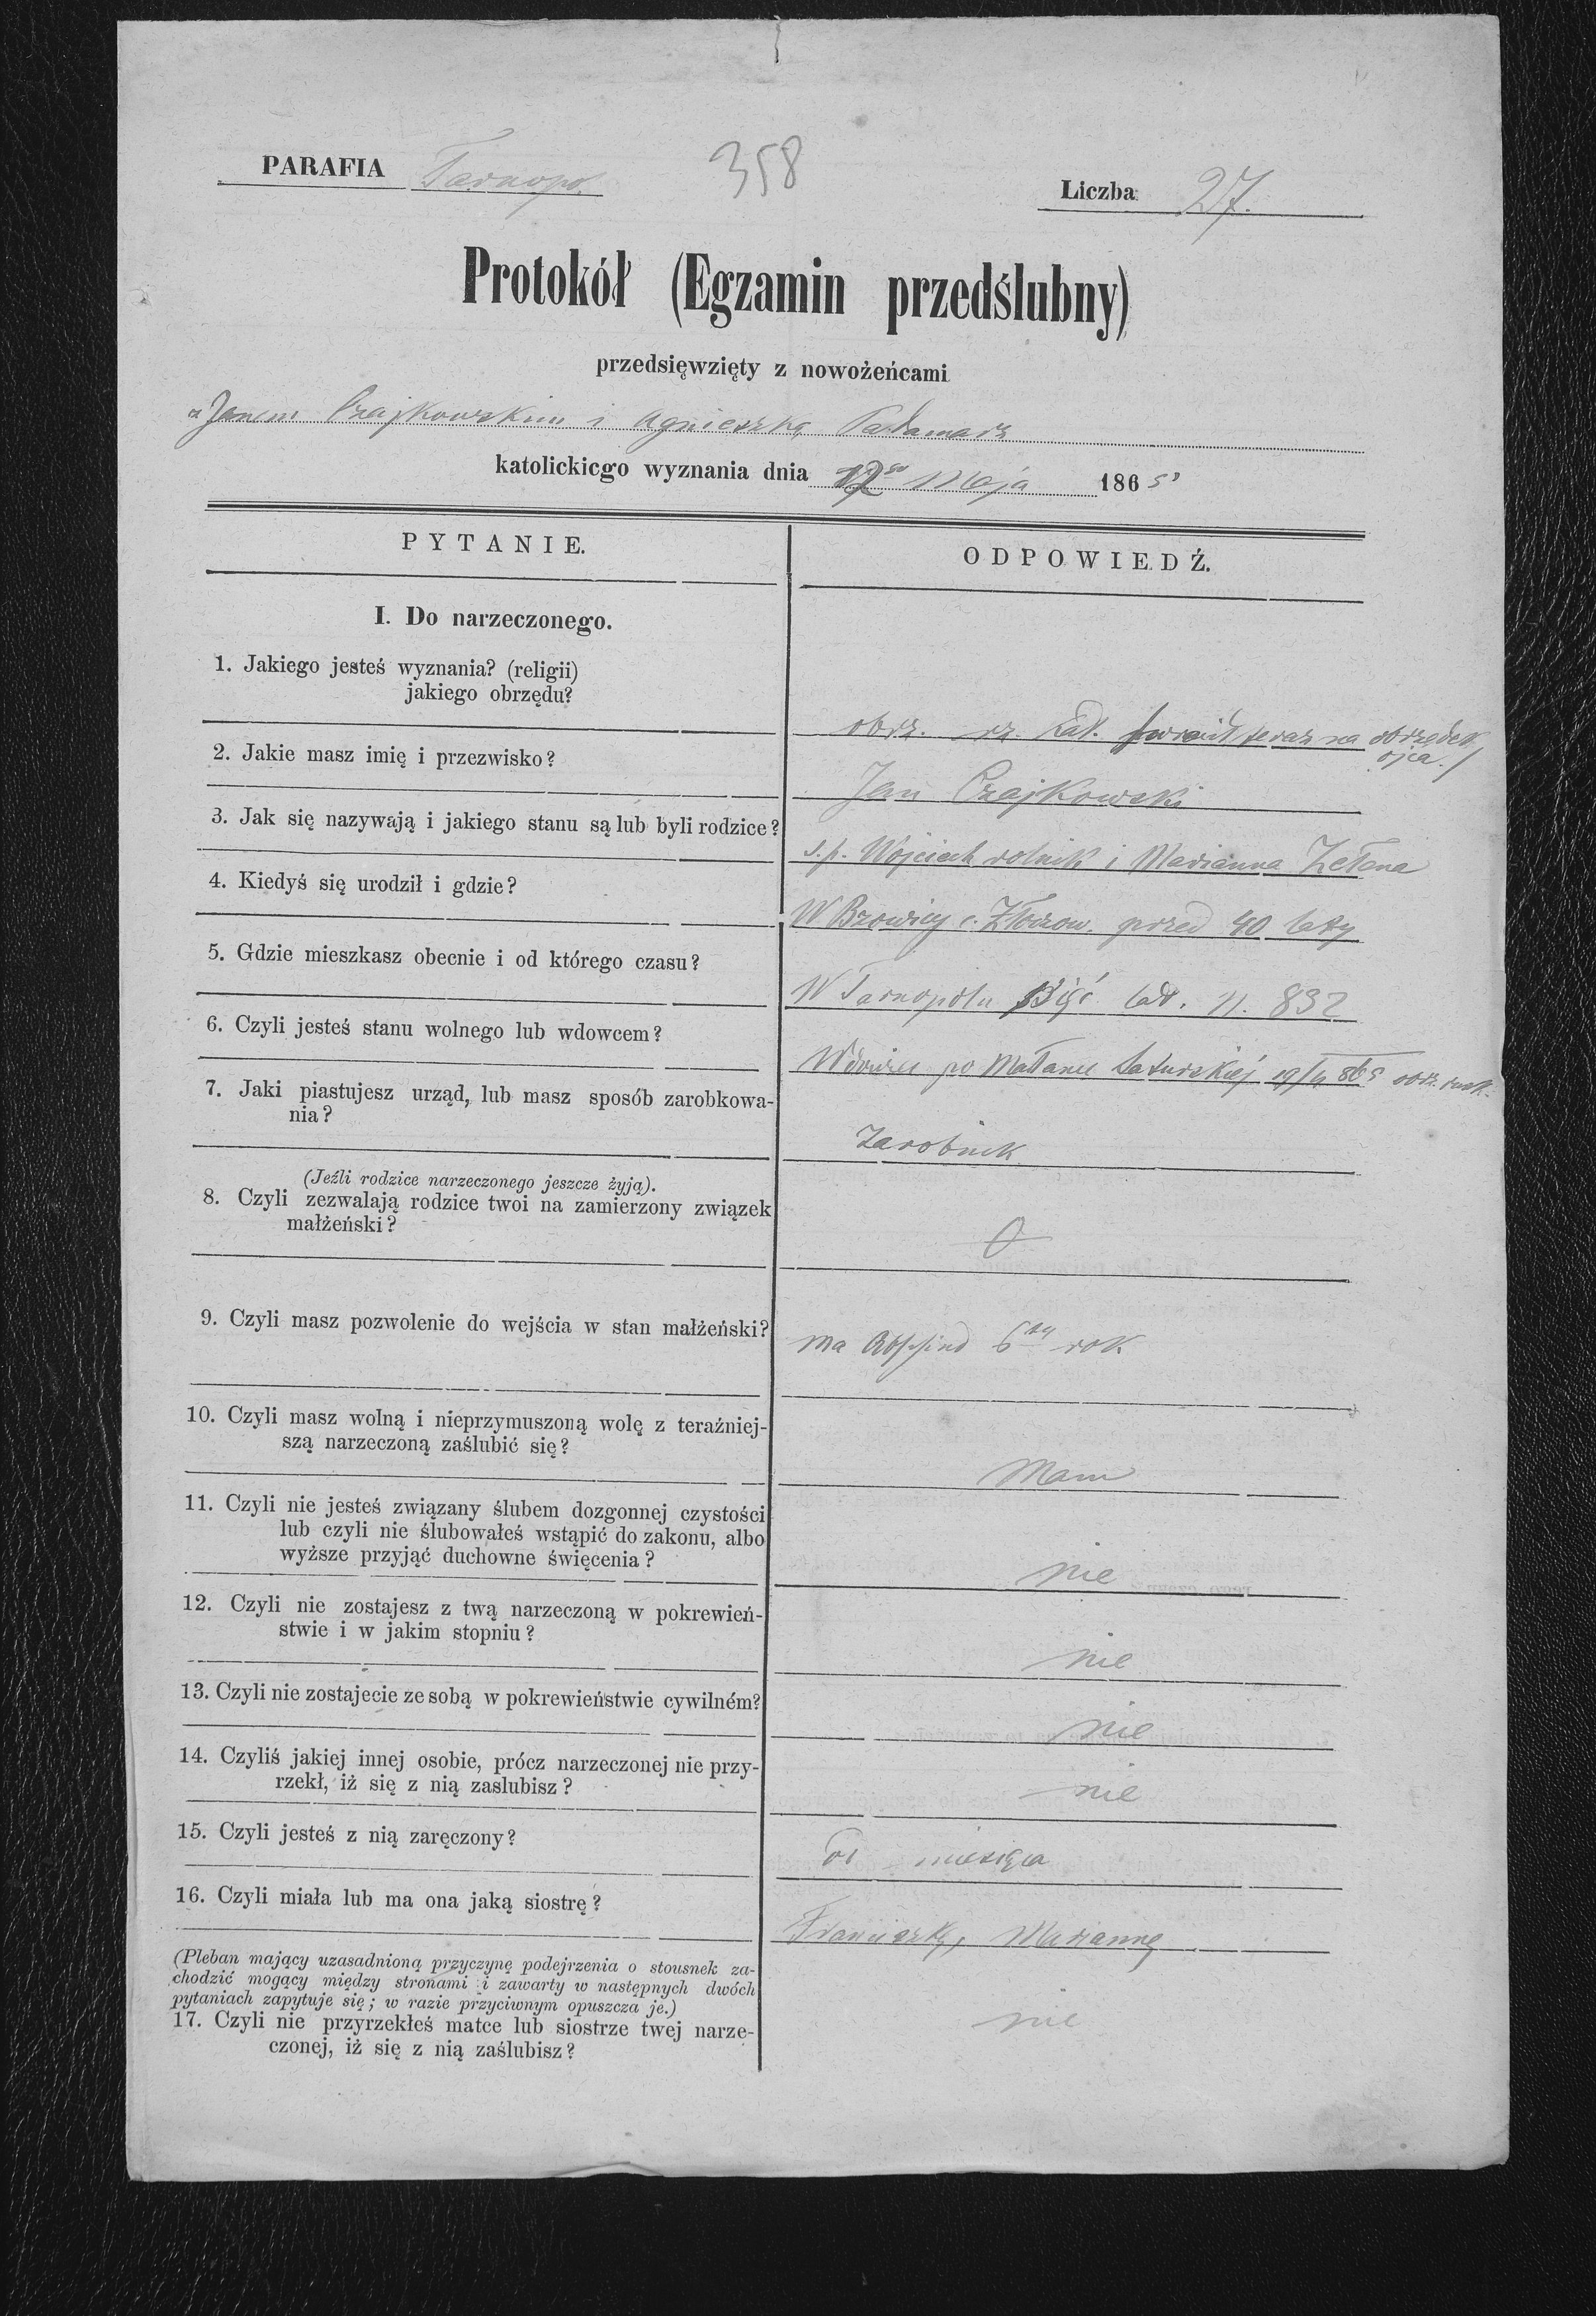 PARAFIA Tarnopo. 358
Liczba 27.
Protokół (Egzamin przedślubny)
przedsięwzięty z nowożeńcami
Janem Czajkowskim i Agnieszką
katolickiego wyznania dnia 12go Maja 1865
PYTANIE.
ODPOWIEDŹ.
I. Do narzeczonego.
1. Jakiego jesteś wyznania? (religii)
jakiego obrzędu?
obrz. rz. kat. teraz na obrządek
ojca./
2. Jakie masz imię i przezwisko?
Jan Czajkowski
3. Jak się nazywają i jakiego stanu są lub byli rodzice?
s.p. Wojciech rolnik i Marianna
4. Kiedyś się urodził i gdzie?
W c. Złoczow. przed 40 laty
5. Gdzie mieszkasz obecnie i od którego czasu?
W Tarnopolu lat. n. 832
6. Czyli jesteś stanu wolnego lub wdowcem?
Wdowiec po
7. Jaki piastujesz urząd, lub masz sposób zarobkowa-
nia?
Zarobnik
(Jeźli rodzice narzeczonego jeszcze żyją).
8. Czyli zezwalają rodzice twoi na zamierzony związek
małżeński?
0
9. Czyli masz pozwolenie do wejścia w stan małżeński?
ma 6ty rok
10. Czyli masz wolną i nieprzymuszoną wolę z teraźniej-
szą narzeczoną zaślubić się?
Mam
11. Czyli nie jesteś związany ślubem dozgonnej czystości
lub czyli nie ślubowałeś wstąpić do zakonu, albo
wyższe przyjąć duchowne święcenia?
nie
12. Czyli nie zostajesz z twą narzeczoną w pokrewień-
stwie i w jakim stopniu?
nie
13. Czyli nie zostajecie ze sobą w pokrewieństwie cywilném?
nie
14. Czyliś jakiej innej osobie, prócz narzeczonej nie przy-
rzekł, iż się z nią zaslubisz?
nie
15. Czyli jesteś z nią zaręczony?
od miesiąca
16. Czyli miała lub ma ona jaką siostrę?
Franciszkę, Mariannę
(Pleban mający uzasadnioną przyczynę podejrzenia o stousnek za-
chodzić mogący między stronami i zawarty w następnych dwóch
pytaniach zapytuje się; w razie przyciwnym opuszcza je.)
17. Czyli nie przyrzekłeś matce lub siostrze twej narze-
czonej, iż się z nią zaślubisz?
nie